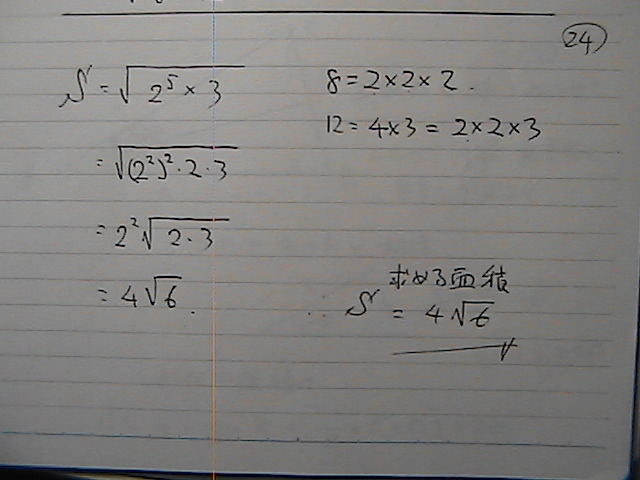 24
S = √(2⁵ × 3)
= √((2²)² · 2 · 3)
= 2² √(2 · 3)
= 4√6.
8 = 2×2×2.
12 = 4×3 = 2×2×3
求める面積
∴ S = 4√6